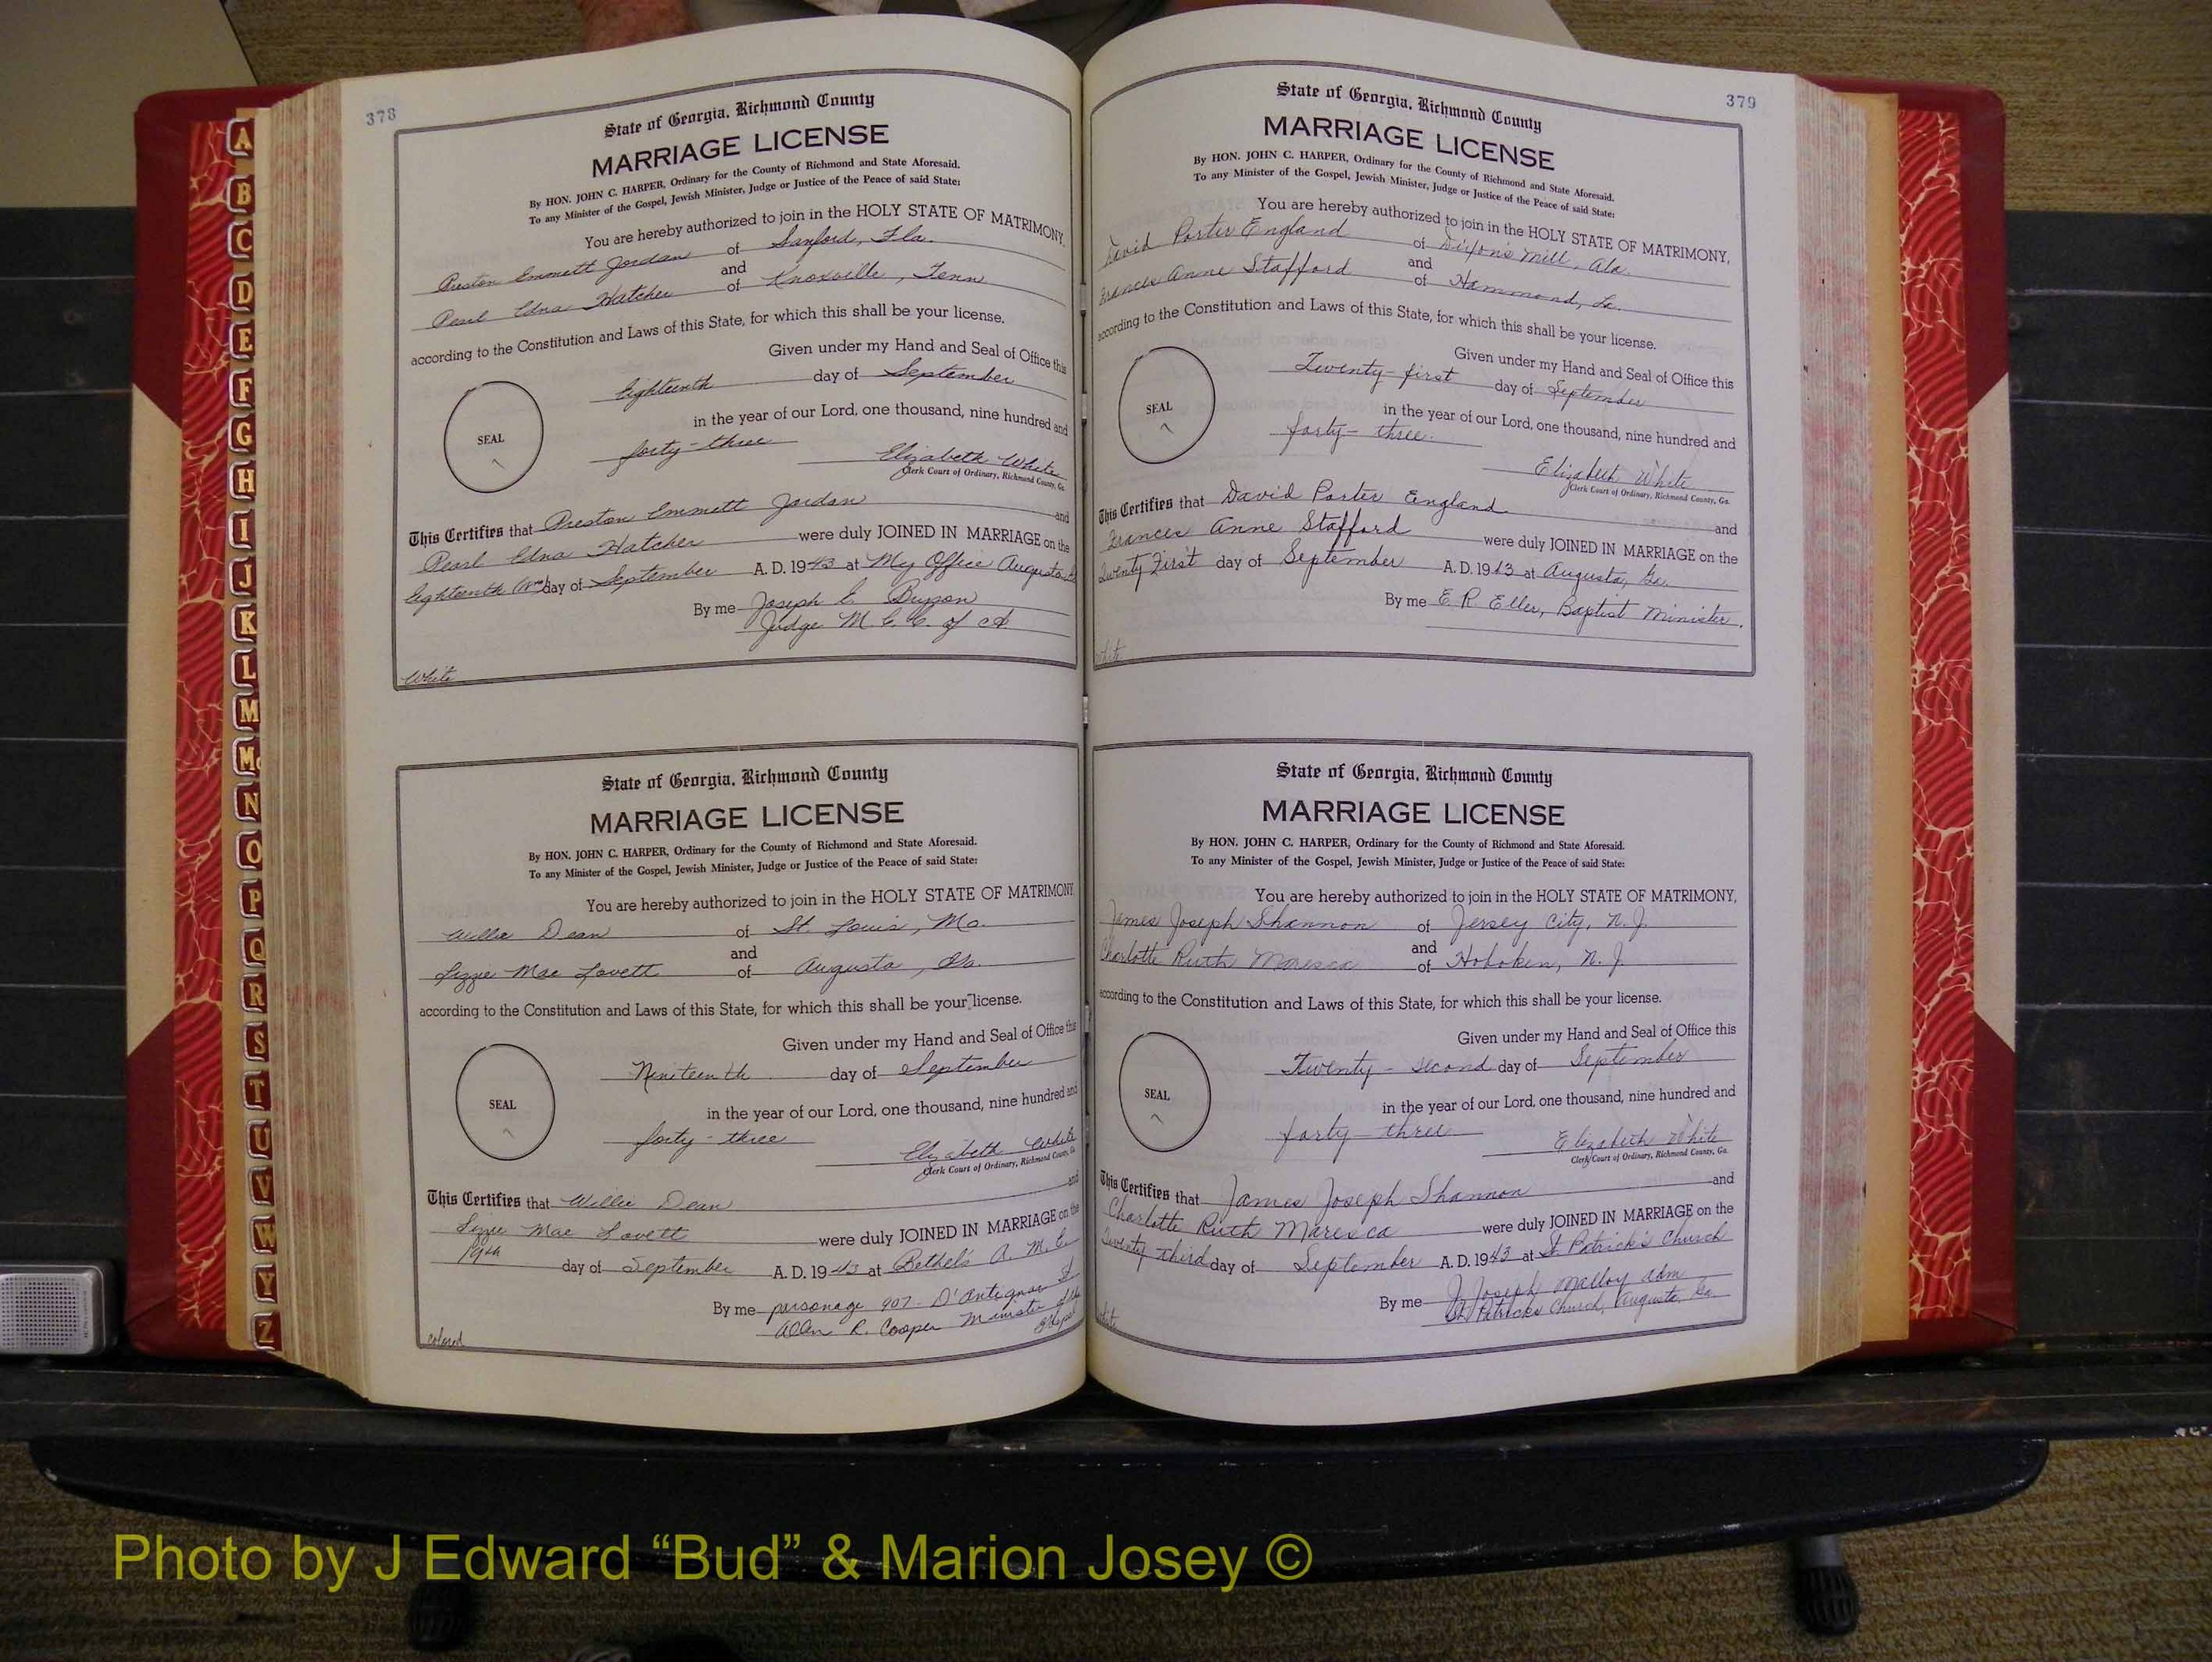 378
State of Georgia, Richmond County
MARRIAGE LICENSE
By HON. JOHN C. HARPER, Ordinary for the County of Richmond and State Aforesaid.
To any Minister of the Gospel, Jewish Minister, Judge or Justice of the Peace of said State:
You are hereby authorized to join in the HOLY STATE OF MATRIMONY,
Preston Emmett Jordan of Sanford, Fla.
and
Pearl Edna Hatcher of Knoxville, Tenn
according to the Constitution and Laws of this State, for which this shall be your license.
Given under my Hand and Seal of Office this
Eighteenth day of September
in the year of our Lord, one thousand, nine hundred and
SEAL
forty-three
Elizabeth White
Clerk Court of Ordinary, Richmond County, Ga.
This Certifies that Preston Emmett Jordan and
Pearl Edna Hatcher were duly JOINED IN MARRIAGE on the
Eighteenth day of September A. D. 1943 at My Office Augusta
By me Joseph E.
Judge M. C. C. of
White
State of Georgia, Richmond County
MARRIAGE LICENSE
By HON. JOHN C. HARPER, Ordinary for the County of Richmond and State Aforesaid.
To any Minister of the Gospel, Jewish Minister, Judge or Justice of the Peace of said State:
You are hereby authorized to join in the HOLY STATE OF MATRIMONY,
Willie Dean of St. Louis, Mo.
and
Lizzie Mae Lovett of Augusta, Ga.
according to the Constitution and Laws of this State, for which this shall be your license.
Given under my Hand and Seal of Office this
Nineteenth day of September
in the year of our Lord, one thousand, nine hundred and
SEAL
forty-three
Elizabeth White
Clerk Court of Ordinary, Richmond County, Ga.
This Certifies that Willie Dean and
Lizzie Mae Lovett were duly JOINED IN MARRIAGE on the
19th day of September A. D. 1943 at Bethel's A. M. E.
By me parsonage 907 D'Antignac St
Allen R. Cooper Minister of the Gospel
colored
379
State of Georgia, Richmond County
MARRIAGE LICENSE
By HON. JOHN C. HARPER, Ordinary for the County of Richmond and State Aforesaid.
To any Minister of the Gospel, Jewish Minister, Judge or Justice of the Peace of said State:
You are hereby authorized to join in the HOLY STATE OF MATRIMONY,
David Porter England of Dixon's Mill, Ala.
and
Frances Anne Stafford of Hammond, La.
according to the Constitution and Laws of this State, for which this shall be your license.
Given under my Hand and Seal of Office this
Twenty-first day of September
in the year of our Lord, one thousand, nine hundred and
SEAL
forty-three.
Elizabeth White
Clerk Court of Ordinary, Richmond County, Ga.
This Certifies that David Porter England and
Frances Anne Stafford were duly JOINED IN MARRIAGE on the
Twenty First day of September A. D. 1943 at Augusta, Ga.
By me E. R. Eller, Baptist Minister.
White
State of Georgia, Richmond County
MARRIAGE LICENSE
By HON. JOHN C. HARPER, Ordinary for the County of Richmond and State Aforesaid.
To any Minister of the Gospel, Jewish Minister, Judge or Justice of the Peace of said State:
You are hereby authorized to join in the HOLY STATE OF MATRIMONY,
James Joseph Shannon of Jersey City, N. J.
and
Charlotte Ruth Maresca of Hoboken, N. J.
according to the Constitution and Laws of this State, for which this shall be your license.
Given under my Hand and Seal of Office this
Twenty-second day of September
in the year of our Lord, one thousand, nine hundred and
SEAL
forty-three
Elizabeth White
Clerk Court of Ordinary, Richmond County, Ga.
This Certifies that James Joseph Shannon and
Charlotte Ruth Maresca were duly JOINED IN MARRIAGE on the
Twenty third day of September A. D. 1943 at St. Patrick's Church
By me J. Joseph Malloy Adm
St. Patricks Church, Augusta, Ga
White
A
B
C
D
E
F
G
H
I
J
K
L
M
Mc
N
O
P
Q
R
S
T
U
V
W
Y
Z
Photo by J Edward “Bud” & Marion Josey ©